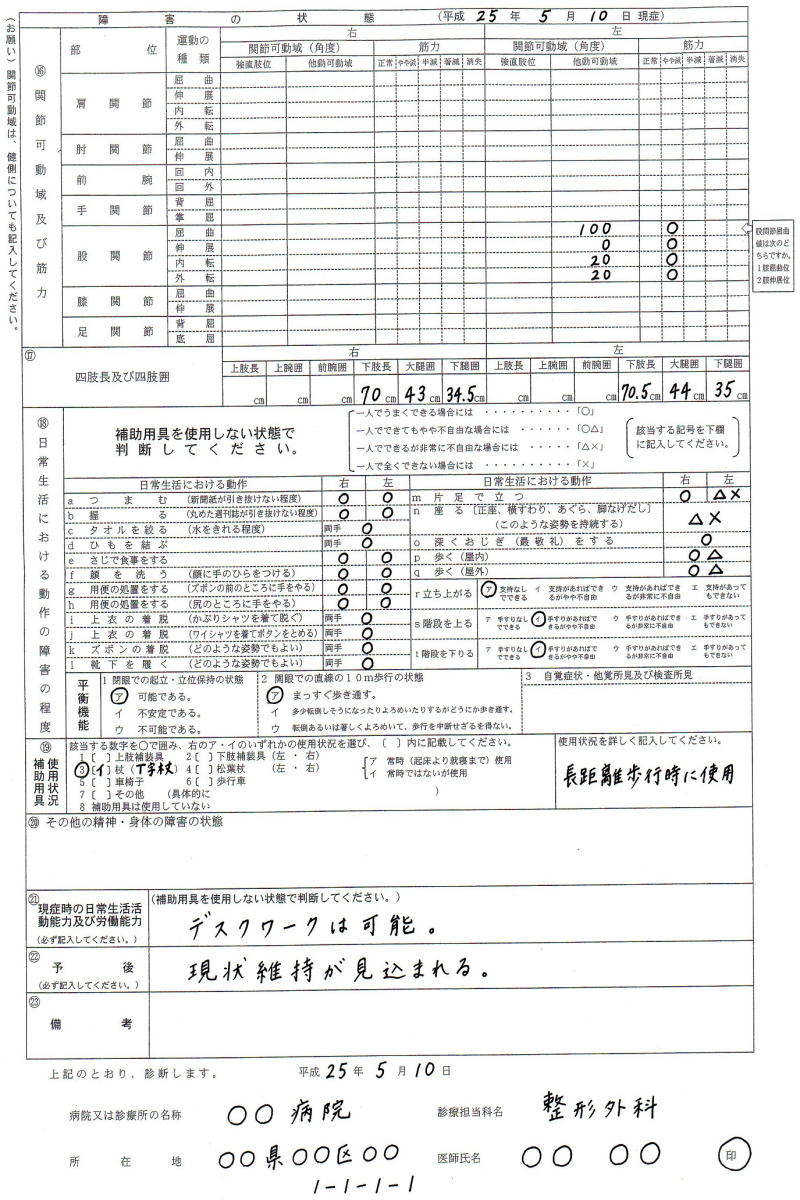 障害の状態 (平成 25 年 5 月 10 日 現症)
(お願い) 関節可動域は、健側についても記入してください。
⑯ 関節可動域及び筋力
部位 運動の種類 右 左
関節可動域(角度) 筋力 関節可動域(角度) 筋力
強直肢位 他動可動域 正常 やや減 半減 著減 消失 強直肢位 他動可動域 正常 やや減 半減 著減 消失
肩関節 屈曲
伸展
内転
外転
肘関節 屈曲
伸展
前腕 回内
回外
手関節 背屈
掌屈
股関節 屈曲 100 ○
伸展 0 ○
内転 20 ○
外転 20 ○
膝関節 屈曲
伸展
足関節 背屈
底屈
股関節屈曲
値は次のど
ちらですか。
1膝屈曲位
2膝伸展位
⑰ 四肢長及び四肢囲
右 左
上肢長 上腕囲 前腕囲 下肢長 大腿囲 下腿囲 上肢長 上腕囲 前腕囲 下肢長 大腿囲 下腿囲
cm cm cm 70cm 43cm 34.5cm cm cm cm 70.5cm 44cm 35cm
⑱ 日常生活における動作の障害の程度
補助用具を使用しない状態で
判断してください。
一人でうまくできる場合には ・・・・・・・・・・「○」
一人でできてもやや不自由な場合には ・・・・・・「○△」
一人でできるが非常に不自由な場合には ・・・・・「△×」
一人で全くできない場合には ・・・・・・・・・・「×」
該当する記号を下欄
に記入してください。
日常生活における動作 右 左
a つまむ (新聞紙が引き抜けない程度) ○ ○
b 握る (丸めた週刊誌が引き抜けない程度) ○ ○
c タオルを絞る (水をきれる程度) 両手 ○
d ひもを結ぶ 両手 ○
e さじで食事をする ○ ○
f 顔を洗う (顔に手のひらをつける) ○ ○
g 用便の処置をする (ズボンの前のところに手をやる) ○ ○
h 用便の処置をする (尻のところに手をやる) ○ ○
i 上衣の着脱 (かぶりシャツを着て脱ぐ) 両手 ○
j 上衣の着脱 (ワイシャツを着てボタンをとめる) 両手 ○
k ズボンの着脱 (どのような姿勢でもよい) 両手 ○
l 靴下を履く (どのような姿勢でもよい) 両手 ○
日常生活における動作 右 左
m 片足で立つ ○ △×
n 座る〔正座、横すわり、あぐら、脚なげだし〕
(このような姿勢を持続する) △×
o 深くおじぎ(最敬礼)をする ○
p 歩く(屋内) ○△
q 歩く(屋外) ○△
r 立ち上がる ㋐ 支持なしでできる イ 支持があればできるがやや不自由 ウ 支持があればできるが非常に不自由 エ 支持があってもできない
s 階段を上る ア 手すりなしでできる ㋑ 手すりがあればできるがやや不自由 ウ 手すりがあればできるが非常に不自由 エ 手すりがあってもできない
t 階段を下りる ア 手すりなしでできる ㋑ 手すりがあればできるがやや不自由 ウ 手すりがあればできるが非常に不自由 エ 手すりがあってもできない
平衡機能
1 閉眼での起立・立位保持の状態
㋐ 可能である。
イ 不安定である。
ウ 不可能である。
2 開眼での直線の10m歩行の状態
㋐ まっすぐ歩き通す。
イ 多少転倒しそうになったりよろめいたりするがどうにか歩き通す。
ウ 転倒あるいは著しくよろめいて、歩行を中断せざるを得ない。
3 自覚症状・他覚所見及び検査所見
⑲ 補助用具使用状況
該当する数字を○で囲み、右のア・イのいずれかの使用状況を選び、〔 〕内に記載してください。
1〔 〕上肢補装具 2〔 〕下肢補装具(左・右)
③〔イ〕杖(丁字杖) 4〔 〕松葉杖 (左・右)
5〔 〕車椅子 6〔 〕歩行車
7〔 〕その他 (具体的に )
8 補助用具は使用していない
ア 常時(起床より就寝まで)使用
イ 常時ではないが使用
使用状況を詳しく記入してください。
長距離歩行時に使用
⑳ その他の精神・身体の障害の状態
㉑ 現症時の日常生活活
動能力及び労働能力
(必ず記入してください。)
(補助用具を使用しない状態で判断してください。)
デスクワークは可能。
㉒ 予後
(必ず記入してください。)
現状維持が見込まれる。
㉓ 備考
上記のとおり、診断します。 平成 25 年 5 月 10 日
病院又は診療所の名称 ○○病院 診療担当科名 整形外科
所在地 ○○県○○区○○ 医師氏名 ○○ ○○ 印
1-1-1-1